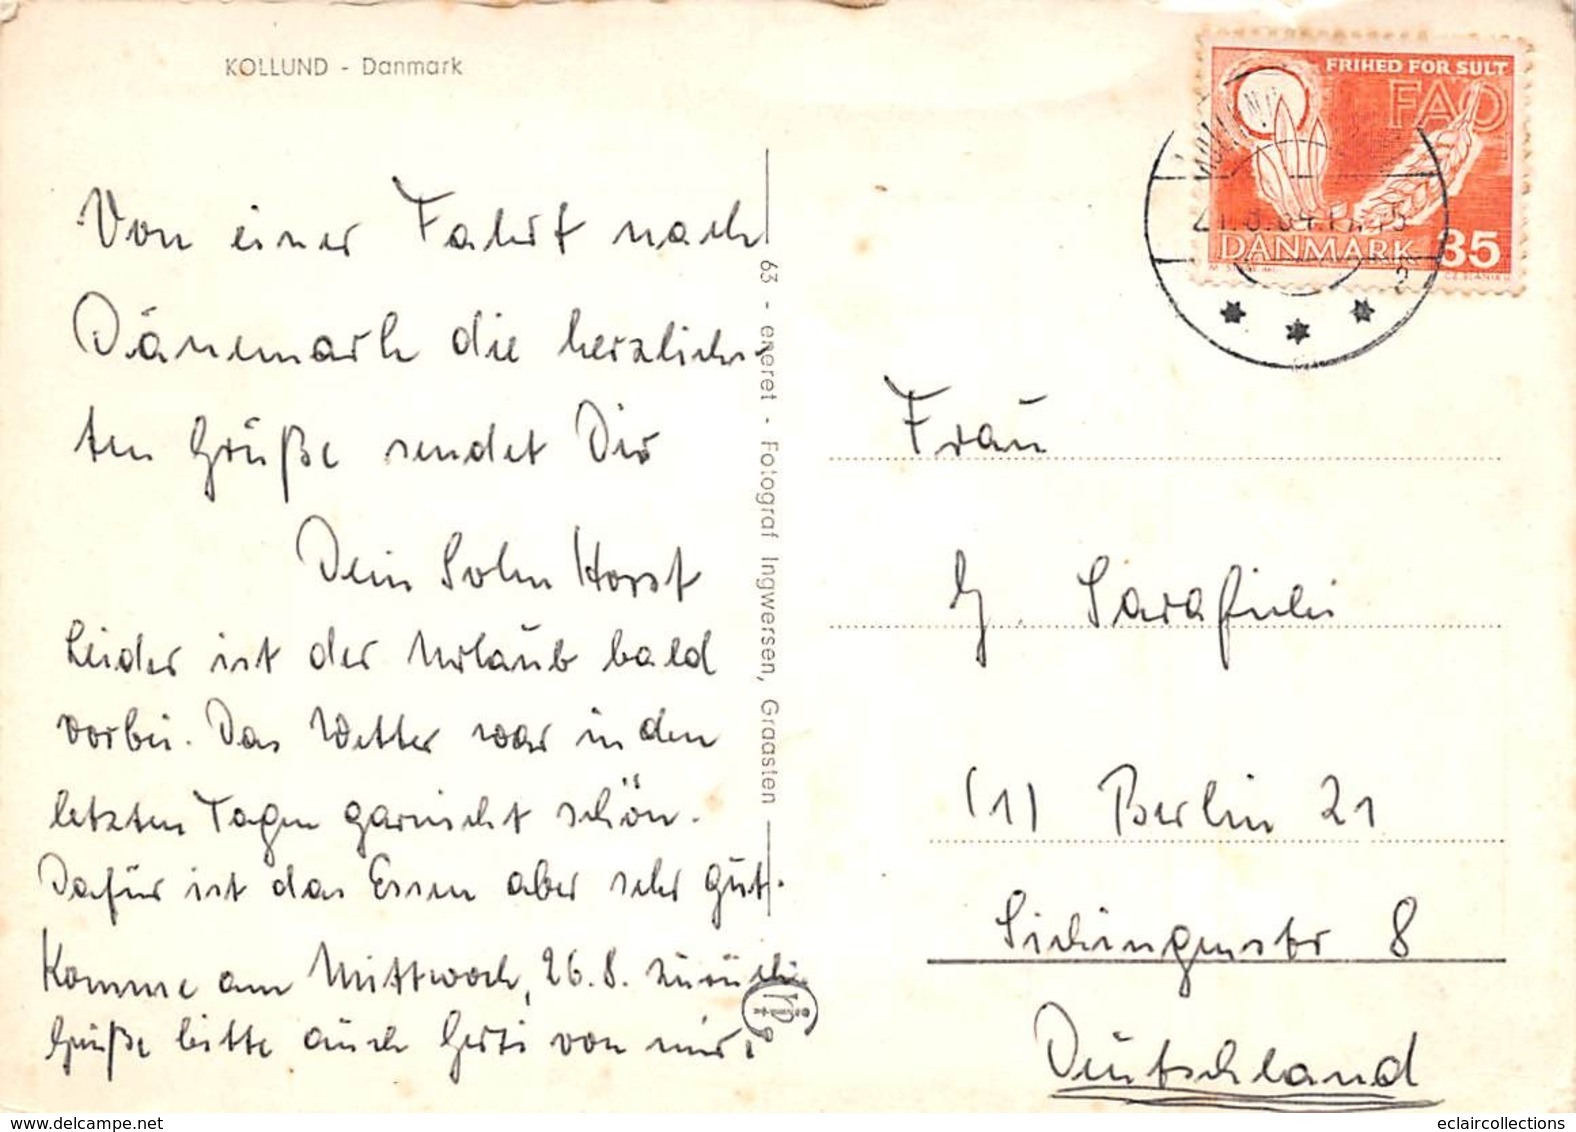 KOLLUND - Danmark
Von einer Fahrt nach
Dänemark die herzlichs-
ten Grüße sendet Dir
Dein Sohn Horst
Leider ist der Urlaub bald
vorbei. Das Wetter war in den
letzten Tagen garnicht schön.
Dafür ist das Essen aber sehr gut.
Komme am Mittwoch, 26.8. zurück
Grüße bitte auch Gerti von mir.
63 - eneret - Fotograf Ingwersen, Graasten
FRIHED FOR SULT
FAO
DANMARK 35
KOLLUND
Frau
G. Sarafin
(1) Berlin 21
Sickingenstr 8
Deutschland
eclaircollections